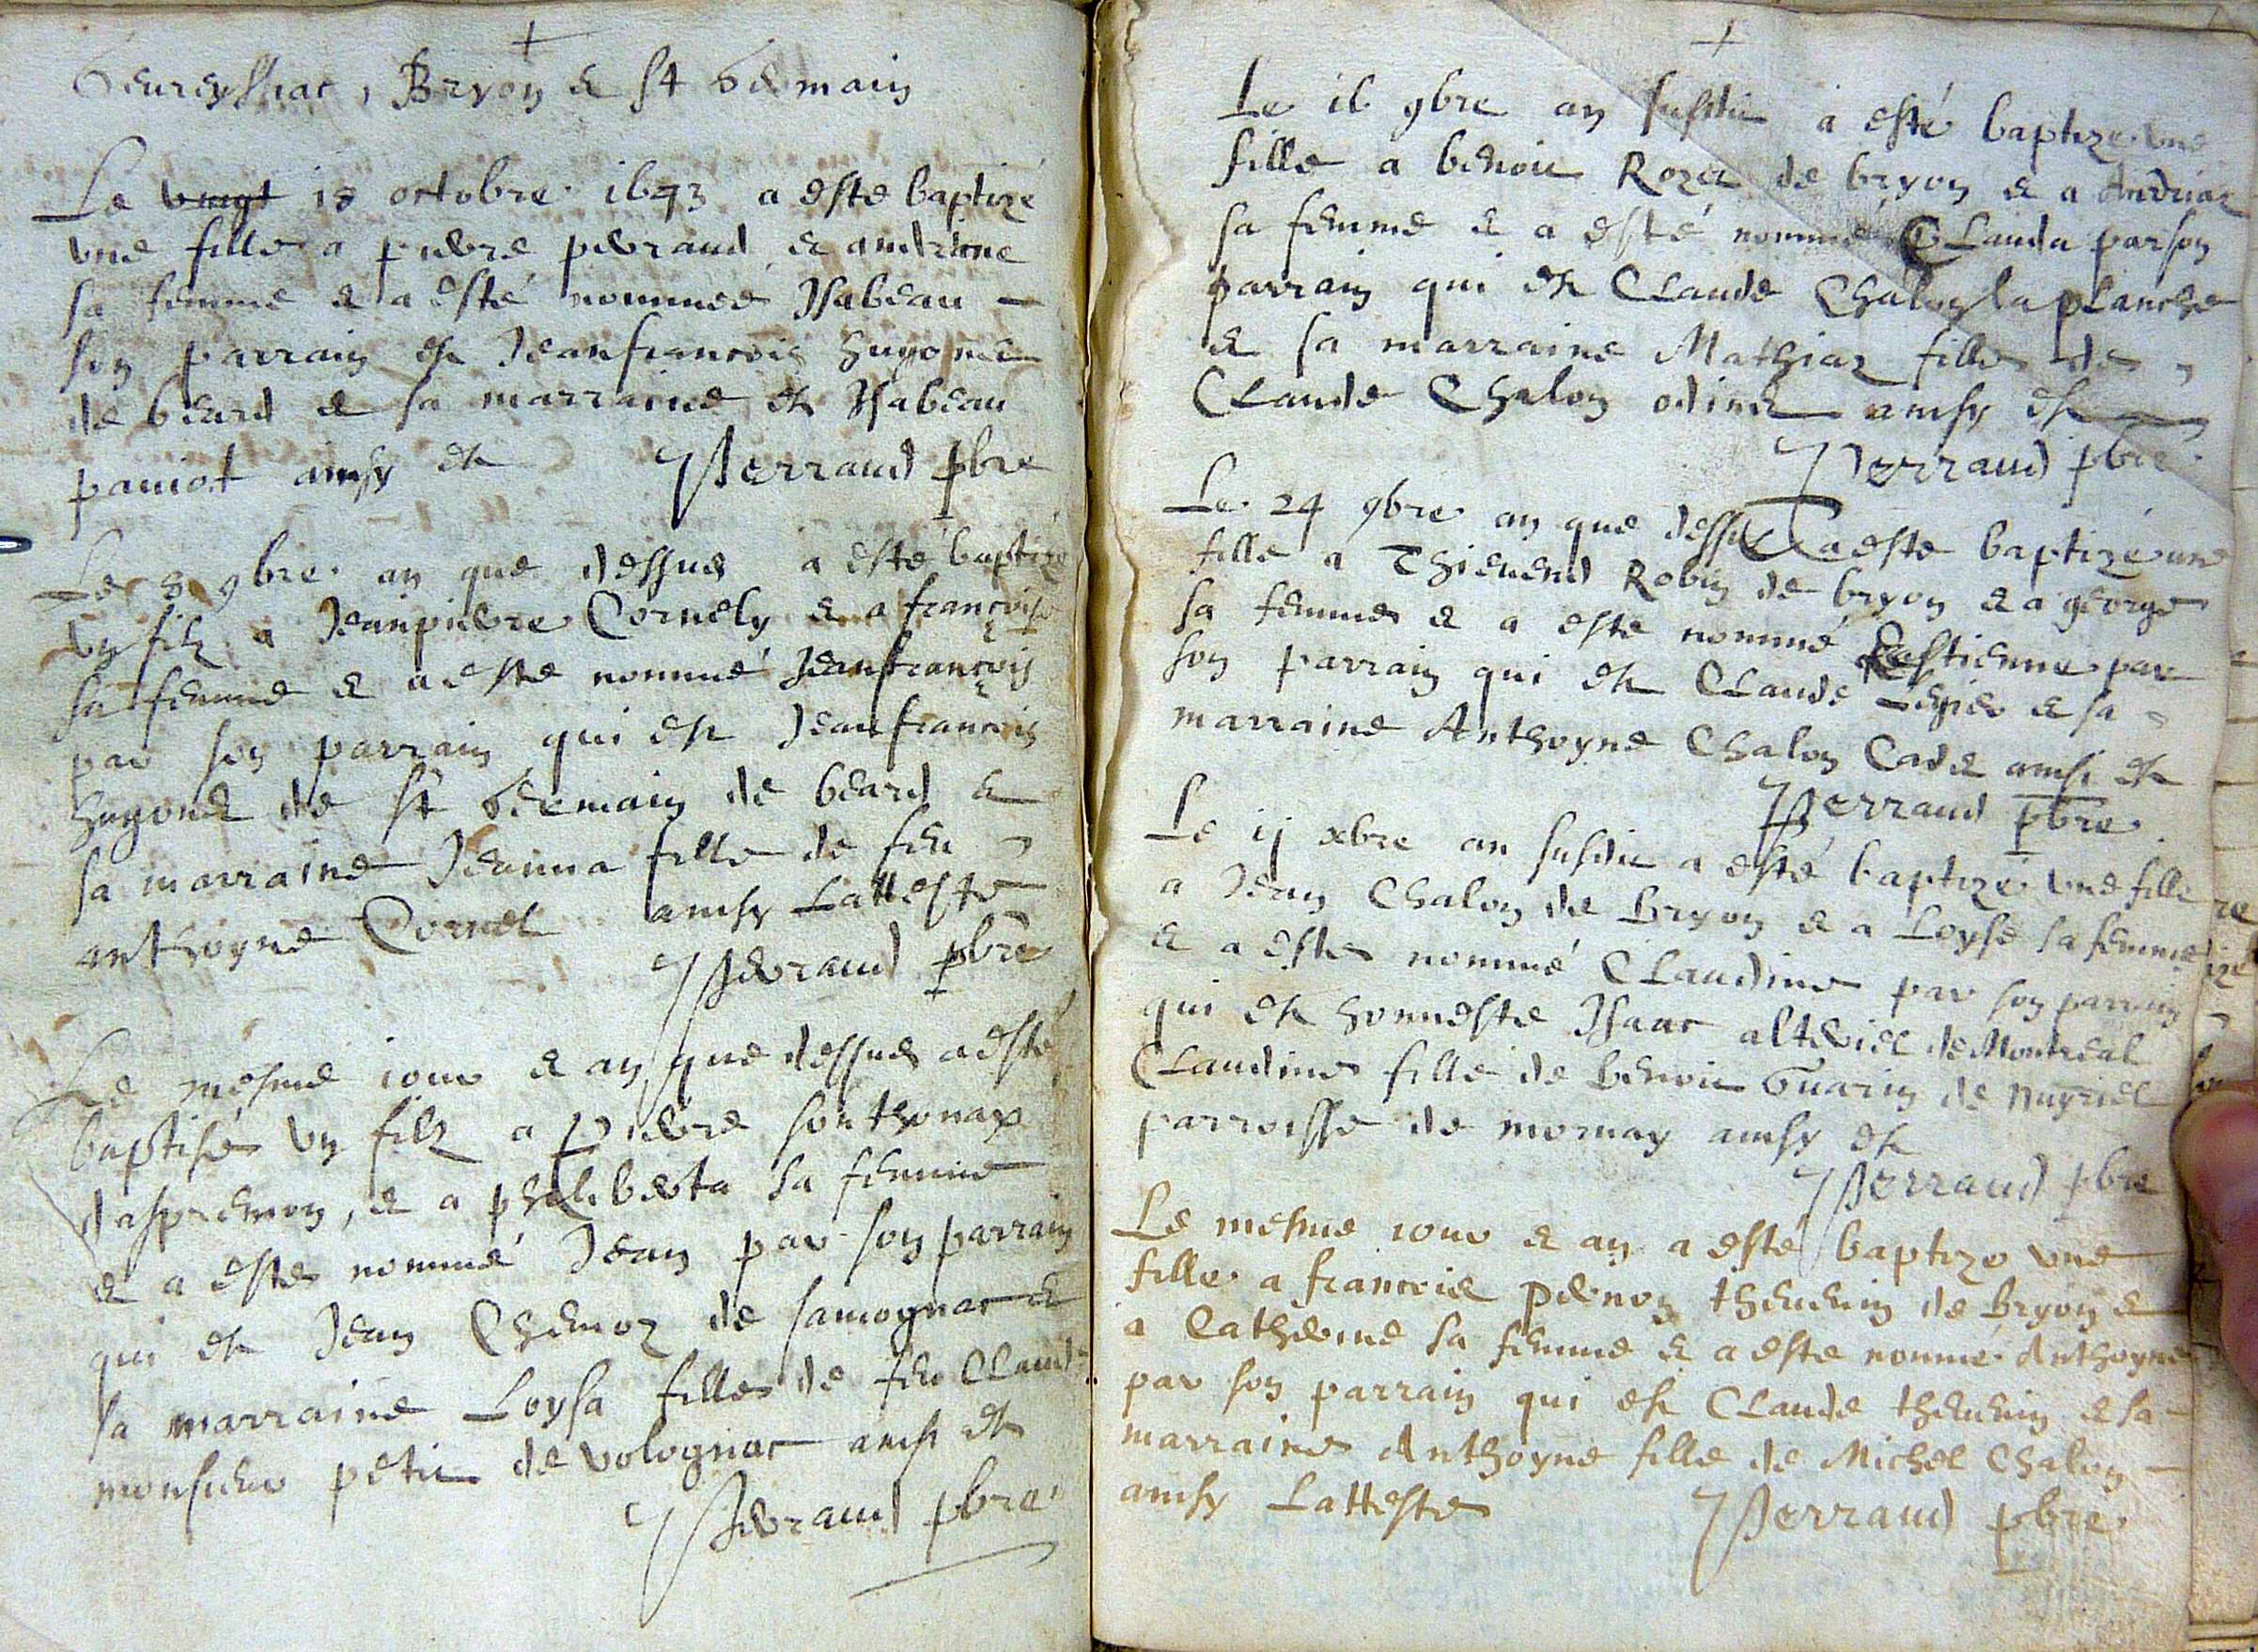 +
Geureyssiac, Bryon & st Germain
Le vingt 18 octobre 1643 a este baptizé
une fille a pierre perraud & andriane
sa femme & a esté nommée Ysabeau
son parrain est Jeanfrancois hugonet
de beard & sa marraine est Ysabeau
paniot ainsy est Perraud pbre
Le 8 9bre an que dessus a esté baptizé
un filz a Jeanpierre Cornely & a francoise
sa femme & a este nommé Jeanfrancois
par son parrain qui est Jeanfrancois
hugonet de st Germain de beard &
sa marraine Jeanna fille de feu
anthoyne Cornel ainsy Latteste
Perraud pbre
Le mesme iour & an que dessus a esté
baptisé un filz a pierre sonthonax
daspremon, & a philiberta sa femme
& a este nommé Jean par son parrain
qui est Jean Chemoz de samognac &
sa marraine Loysa fille de feu Claud
monsieur petit de volognac ainsi est
Perraud pbre
+
Le 16 9bre an susdit a esté baptizé une
fille a benoit Rozet de bryon & a Andriaz
sa femme & a esté nommé Clauda par son
parrain qui est Claude Chalon la planche
& sa marraine Mathiaz fille de
Claude Chalon odinet ainsy est
Perraud pbre
Le 24 9bre an que dessus a este baptizé une
fille a Thievend Robin de bryon & a george
sa femme & a este nommé Estienne par
son parrain qui est Claude & sa
marraine Anthoyne Chalon Cadet ainsi est
Perraud pbre
Le ij xbre an susdit a esté baptizé une fille
a Jean Chalon de Bryon & a Loyse sa femme
& a este nommé Claudine par son parrain
qui est honneste Isaac alteriet de Montreal
Claudine fille de benoit Guarin de nuyriet
parroisse de mornay ainsy est
Perraud pbre
Le mesme iour & an a esté baptizé une
fille a francois pernon thevenin de Bryon &
a Catherine sa femme & a este nommé Anthoyne
par son parrain qui est Claude thevenin & sa
marraine Anthoyne fille de Michel Chalon
ainsy Latteste Perraud pbre